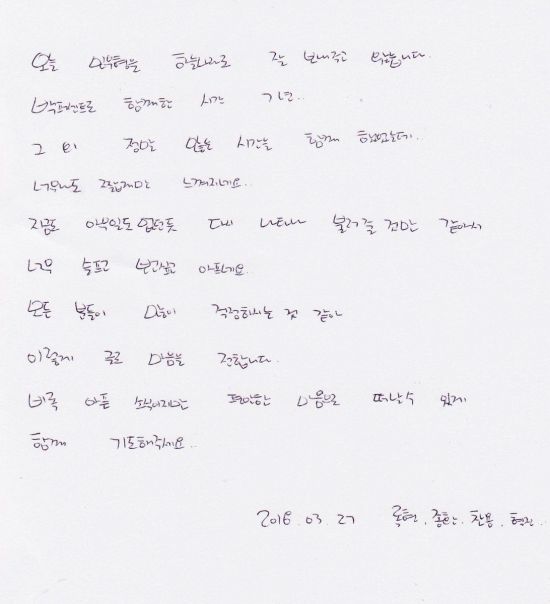 오늘 인우형을 하늘나라로 잘 보내주고 왔습니다.
백두산으로 함께한 시간 7년..
그 외 정말 많은 시간을 함께 했었는데..
너무나도 짧게만 느껴지네요..
지금도 아무일도 없던듯 다시 나타나 불러줄 것만 같아서
너무 슬프고 보고싶고 아프네요..
모든 분들이 많이 걱정하시는 것 같아
이렇게 글로 마음을 전합니다.
비록 아픈 소식이지만 편안한 마음으로 떠날 수 있게
함께 기도해주세요..
2016. 03. 27 종찬. 찬용. 혁진.